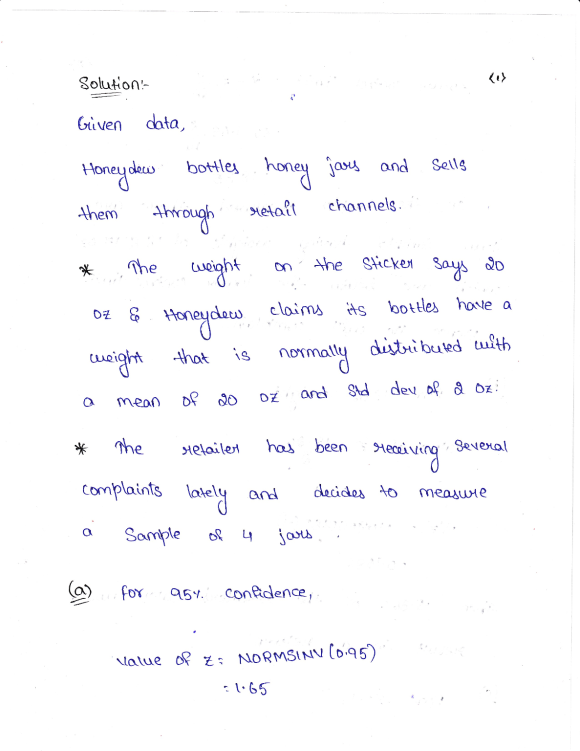 <1>
Solution:-
Given data,
Honeydew bottles honey jars and sells
them through retail channels.
* The weight on the sticker says 20
oz & Honeydew claims its bottles have a
weight that is normally distributed with
a mean of 20 oz and Std dev of 2 oz.
* The retailer has been receiving several
complaints lately and decides to measure
a Sample of 4 jars.
(a) for 95% confidence,
value of z = NORMSINV (0.95)
= 1.65